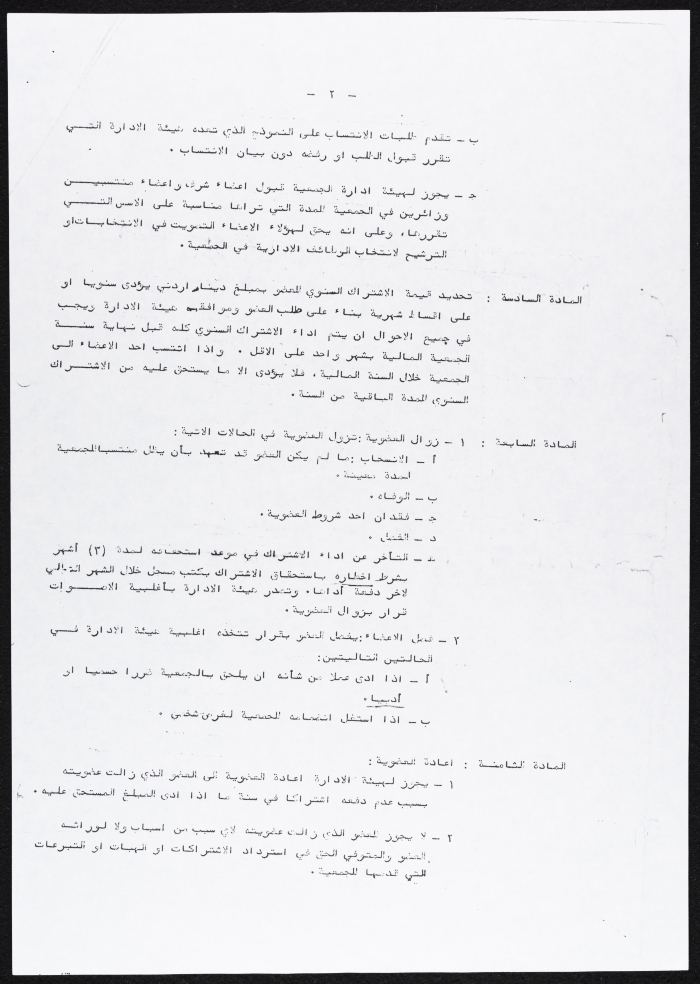 - ٢ -
ب - تقدم طلبات الانتساب على النموذج الذي تعده هيئة الادارة التـــي
تقرر قبول الطلب او رفضه دون بيان الانتساب .
ج - يجوز لهيئة ادارة الجمعية قبول اعضاء شرف واعضاء منتسبيـــن
وزائرين في الجمعية للمدة التي تراها مناسبة على الاسس التـــي
تقررها، وعلى انه يحق لهؤلاء الاعضاء التصويت في الانتخابات او
الترشيح لانتخاب الوظائف الادارية في الجمعية .
المادة السادسة : تحديد قيمة الاشتراك السنوي للعضو بمبلغ دينار اردني يؤدى سنويا او
على اقساط شهرية بناء على طلب العضو وموافقة هيئة الادارة ويجب
في جميع الاحوال ان يتم اداء الاشتراك السنوي كله قبل نهاية سنـــة
الجمعية المالية بشهر واحد على الاقل . واذا انتسب احد الاعضاء الى
الجمعية خلال السنة المالية ، فلا يؤدى الا ما يستحق عليه من الاشتـــراك
السنوى للمدة الباقية من السنة .
المادة السابعة : ١ - زوال العضوية : تزول العضوية في الحالات الاتية :
أ - الانسحاب : ما لم يكن العضو قد تعهد بأن يظل منتسبا للجمعية
لمدة معينة .
ب - الوفاه .
ج - فقدان احد شروط العضوية .
د - الفصل .
هـ - التأخر عن اداء الاشتراك في موعد استحقاقه لمدة (٣) أشهر
بشرط اخطاره باستحقاق الاشتراك بكتب مسجل خلال الشهر التالي
لاخر دفعة أداها . وتصدر هيئة الادارة بأغلبية الاصـــوات
قرار بزوال العضوية .
٢ - فصل الاعضاء : يفصل العضو بقرار تتخذه اغلبية هيئة الادارة فـــي
الحالتين التاليتين :
أ - اذا اتى عملا من شأنه ان يلحق بالجمعية ضررا جسميا او
أدبيا .
ب - اذا استغل انضمامه للجمعية لغرض شخصي .
المادة الثامنـة : اعادة العضوية :
١ - يجوز لهيئة الادارة اعادة العضوية الى العضو الذي زالت عضويته
بسبب عدم دفعه اشتراكا في سنة ما اذا ادى المبلغ المستحق عليه .
٢ - لا يجوز للعضو الذي زالت عضويته لاي سبب من اسباب ولا لورائه
العضو والمتوفي الحق في استرداد الاشتراكات او الهبات او التبرعات
التي قدمها للجمعية .